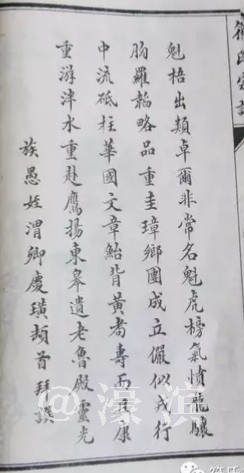 魁梧出類卓爾非常名魁虎榜氣憤龍驤
胸羅韜略品重圭璋鄉團成立儼似戎行
中流砥柱華國文章鮐背黃耇壽而且康
重游泮水重赴鷹揚東皋遺老魯殿靈光
族愚姪渭卿慶璜頓首拜譔
@濠滨